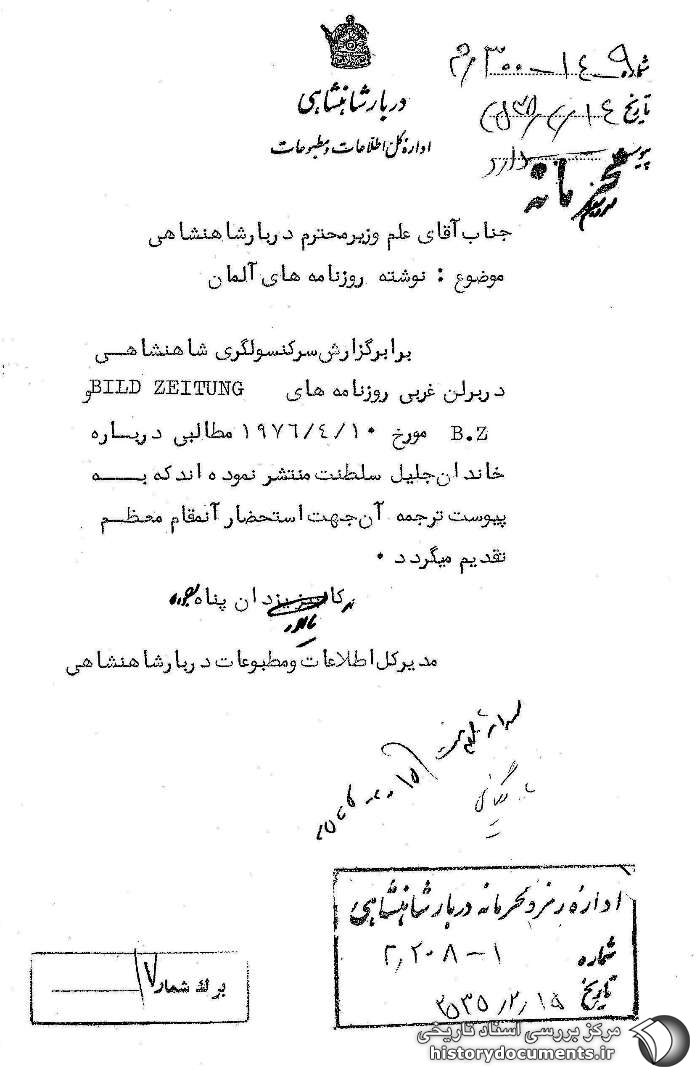 دربار شاهنشاهی
اداره کل اطلاعات و مطبوعات
شماره
تاریخ
پیوست دارد
محرمانه
جناب آقای علم وزیر محترم دربار شاهنشاهی
موضوع : نوشته روزنامه های آلمان
برابر گزارش سرکنسولگری شاهنشاهـی
در برلن غربی روزنامه های BILD ZEITUNG و
B.Z مورخ ۱۹۷٦/٤/۱۰ مطالبی دربـاره
خاندان جلیل سلطنت منتشر نموده اند که بـــه
پیوست ترجمه آن جهت استحضار آنمقام معظـم
تقدیم میگردد ۰
یزدان پناه
مدیرکل اطلاعات و مطبوعات دربار شاهنشاهی
اداره رمز و محرمانه دربار شاهنشاهی
شماره ۱-۲٫۲۰۸
تاریخ
برگ شماره ۱۷
مرکز بررسی اسناد تاریخی
historydocuments.ir